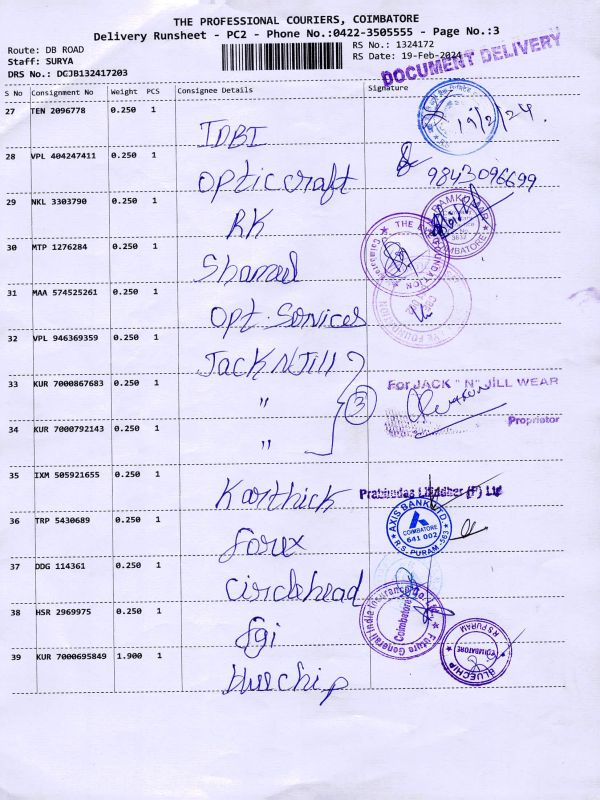 THE PROFESSIONAL COURIERS, COIMBATORE
Delivery Runsheet - PC2 - Phone No.:0422-3505555 - Page No.:3
Route: DB ROAD
Staff: SURYA
DRS No.: DGJB132417203
RS No.: 1324172
RS Date: 19-Feb-2024
DOCUMENT DELIVERY
S No Consignment No Weight PCS Consignee Details Signature
27 TEN 2096778 0.250 1
IDBI
19/2/24.
28 VPL 404247411 0.250 1
Opticcraft
9843096699
29 NKL 3303790 0.250 1
RK
COIMBATORE
30 MTP 1276284 0.250 1
THE FOUNDATION
31 MAA 574525261 0.250 1
Opt. Services
32 VPL 946369359 0.250 1
Jack N Jill
33 KUR 7000867683 0.250 1
"
3
For JACK " N" JILL WEAR
Proprietor
34 KUR 7000792143 0.250 1
"
35 IXM 505921655 0.250 1
Karthick
Prabhudas Lilladher (P) Ltd
36 TRP 5430689 0.250 1
forex
AXIS BANK LTD.
COIMBATORE
641 002
R.S. PURAM
37 DDG 114361 0.250 1
Circlehead
38 HSR 2969975 0.250 1
fgi
Future Generali India Insurance
Coimbatore
39 KUR 7000695849 1.900 1
Bluechip
BLUECHIP
COIMBATORE
R S PURAM